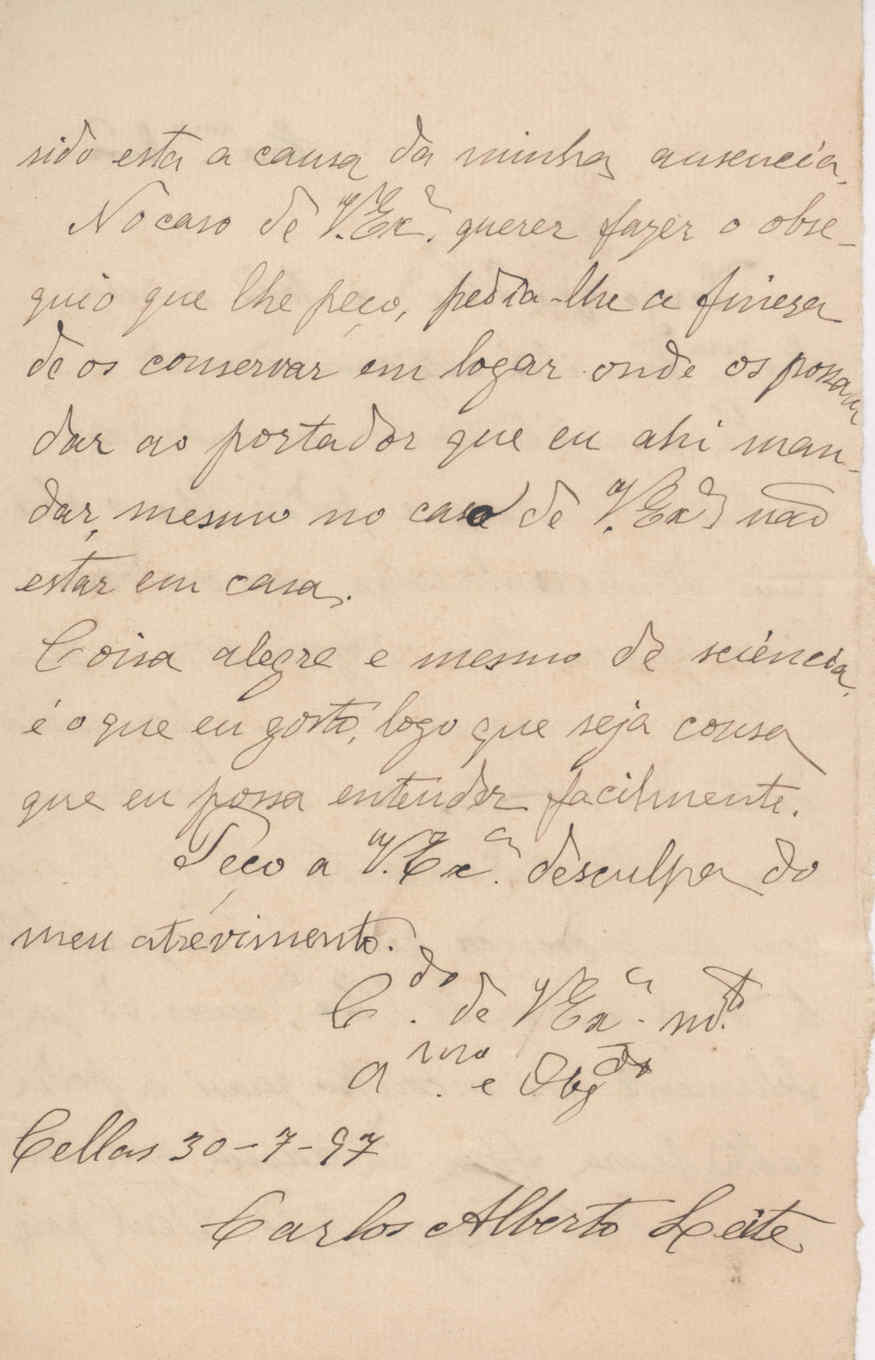 sido esta a causa da minha ausencia.
No caso de V. Exª. querer fazer o obse-
quio que lhe peço, pedia-lhe a fineza
de os conservar em logar onde os possam
dar ao portador que eu ahi man-
dar, mesmo no caso de V. Exª não
estar em casa.
Coisa alegre e mesmo de sciéncia,
é o que eu gosto, logo que seja cousa
que eu possa entender facilmente.
Peço a V. Exª. desculpa do
meu atrevimento.
C.do de V Exª. m.to
a.mo e Obgdo
Cellas 30-7-97
Carlos Alberto Leite